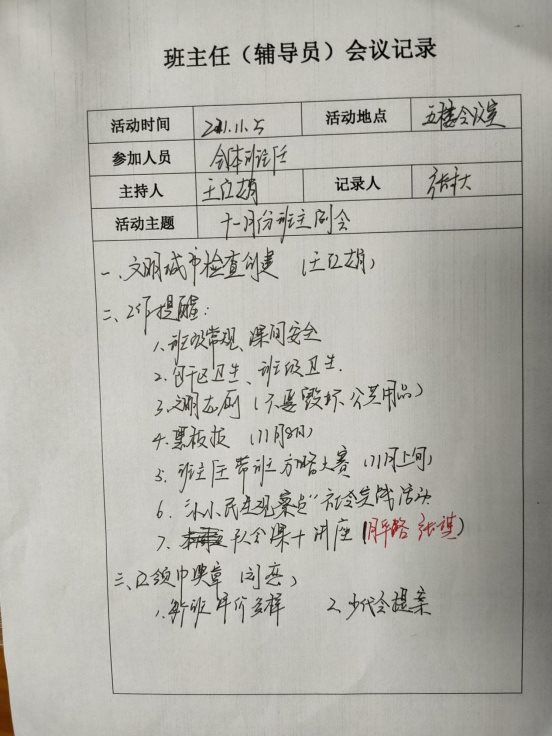 班主任（辅导员）会议记录
活动时间 2021.11.5 活动地点 五楼会议室
参加人员 全体班主任
主持人 王红娟 记录人
活动主题 十一月份班主任例会
一、文明城市检查创建 （王红娟）
二、工作提醒：
1、班级常规、课间安全
2、包干区卫生、班级卫生.
3、文明如厕（不要毁坏公共用品）
4、黑板报（11月8日）
5、班主任带班方略大赛（11月上旬）
6、“小小民生观察员”社会实践活动
7、队会课+讲座
三、红领巾奖章
1、新班评价多样 2、少代会提案